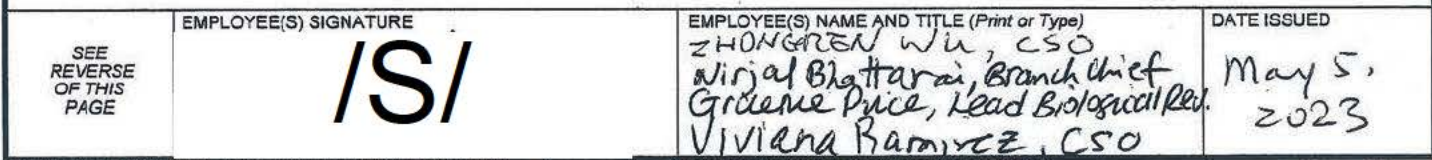 SEE
REVERSE
OF THIS
PAGE
EMPLOYEE(S) SIGNATURE
/S/
EMPLOYEE(S) NAME AND TITLE (Print or Type)
ZHONGREN WU, CSO
Nirjal Bhattarai, Branch Chief
Graeme Price, Lead Biological Rev.
Viviana Ramirez, CSO
DATE ISSUED
May 5,
2023